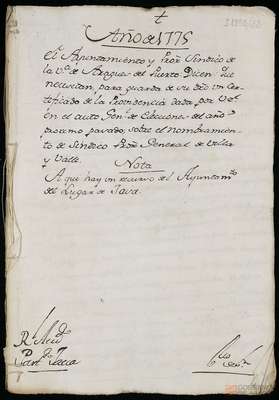 Año de 1775
El Ayuntamiento y Pror Sindico de
la Va. de Aragues del Puerto Dicen que
necesitan, para guarda de su dro un Cer-
tificado de la Providencia dada, por V.E.
en el auto Genl. de Elecciones del año
proximo pasado, sobre el nombramien-
to de Sindico Pror General de Villa
y Valle.
Nota
Aqui hay un recurso del Ayuntamto
del Lugar de Jasa.
Rl Acdo
Part. Jaca